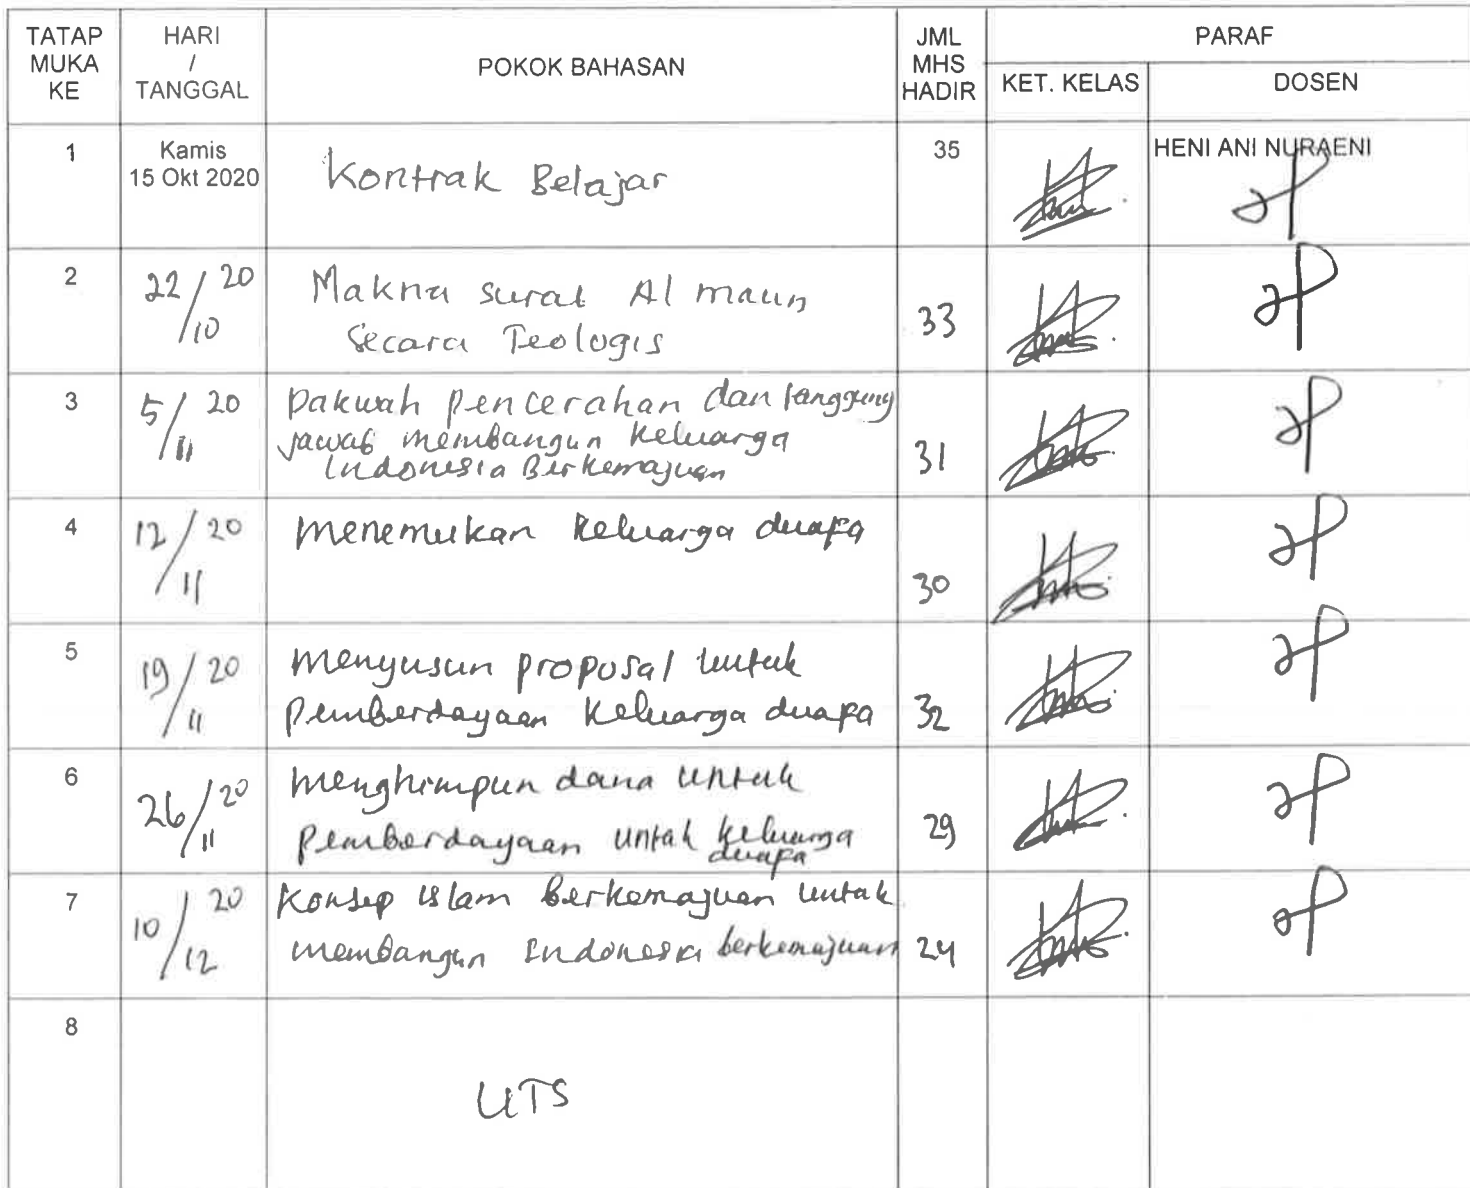 TATAP MUKA KE
HARI / TANGGAL
POKOK BAHASAN
JML MHS HADIR
PARAF
KET. KELAS
DOSEN
1
Kamis
15 Okt 2020
Kontrak Belajar
35
HENI ANI NURAENI
2
22/10 20
Makna surat Al maun
Secara Teologis
33
3
5/11 20
Dakwah pencerahan dan tanggung
jawab membangun keluarga
Indonesia Berkemajuan
31
4
12/11 20
menemukan keluarga duafa
30
5
19/11 20
menyusun proposal untuk
pemberdayaan keluarga duafa
32
6
26/11 20
menghimpun dana untuk
pemberdayaan untuk keluarga
duafa
29
7
10/12 20
Konsep islam berkemajuan untuk
membangun Indonesia berkemajuan
24
8
UTS